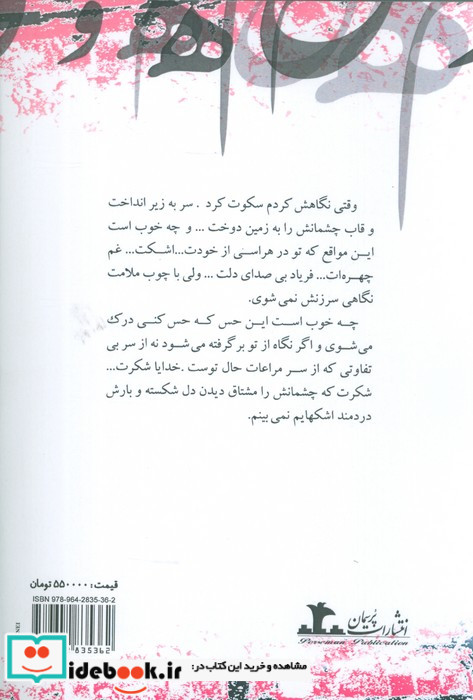 وقتی نگاهش کردم سکوت کرد . سر به زیر انداخت
و قاب چشمانش را به زمین دوخت ... و چه خوب است
این مواقع که تو در هراسی از خودت...اشکت... غم
چهره‌ات... فریاد بی صدای دلت ... ولی با چوب ملامت
نگاهی سرزنش نمی شوی.
چه خوب است این حس که حس کنی درک
می‌شوی و اگر نگاه از تو برگرفته می‌شود نه از سر بی
تفاوتی که از سر مراعات حال توست .خدایا شکرت...
شکرت که چشمانش را مشتاق دیدن دل شکسته و بارش
دردمند اشکهایم نمی بینم.
قیمت: ۵۵۰۰۰۰ تومان
ISBN 978-964-2835-36-2
835362
انتشارات پرسمان
Porseman Publication
مشاهده و خرید این کتاب در:
idebook.ir